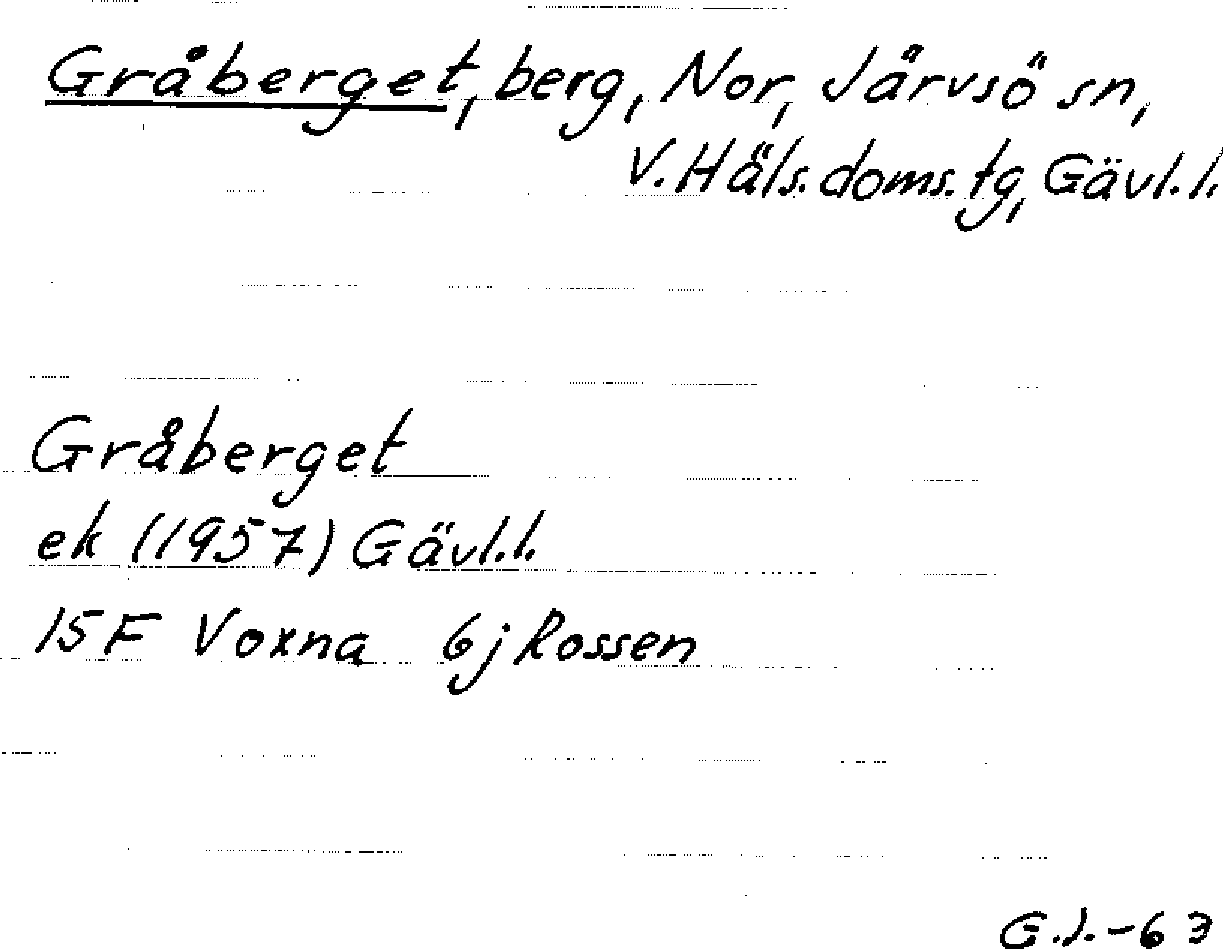 Gråberget, berg, Nor, Järvsö sn,
V. Häls. doms. tg, Gävl. l.
Gråberget
ek (1957) Gävl. l.
15 F Voxna 6 j Rossen
G. J. - 63